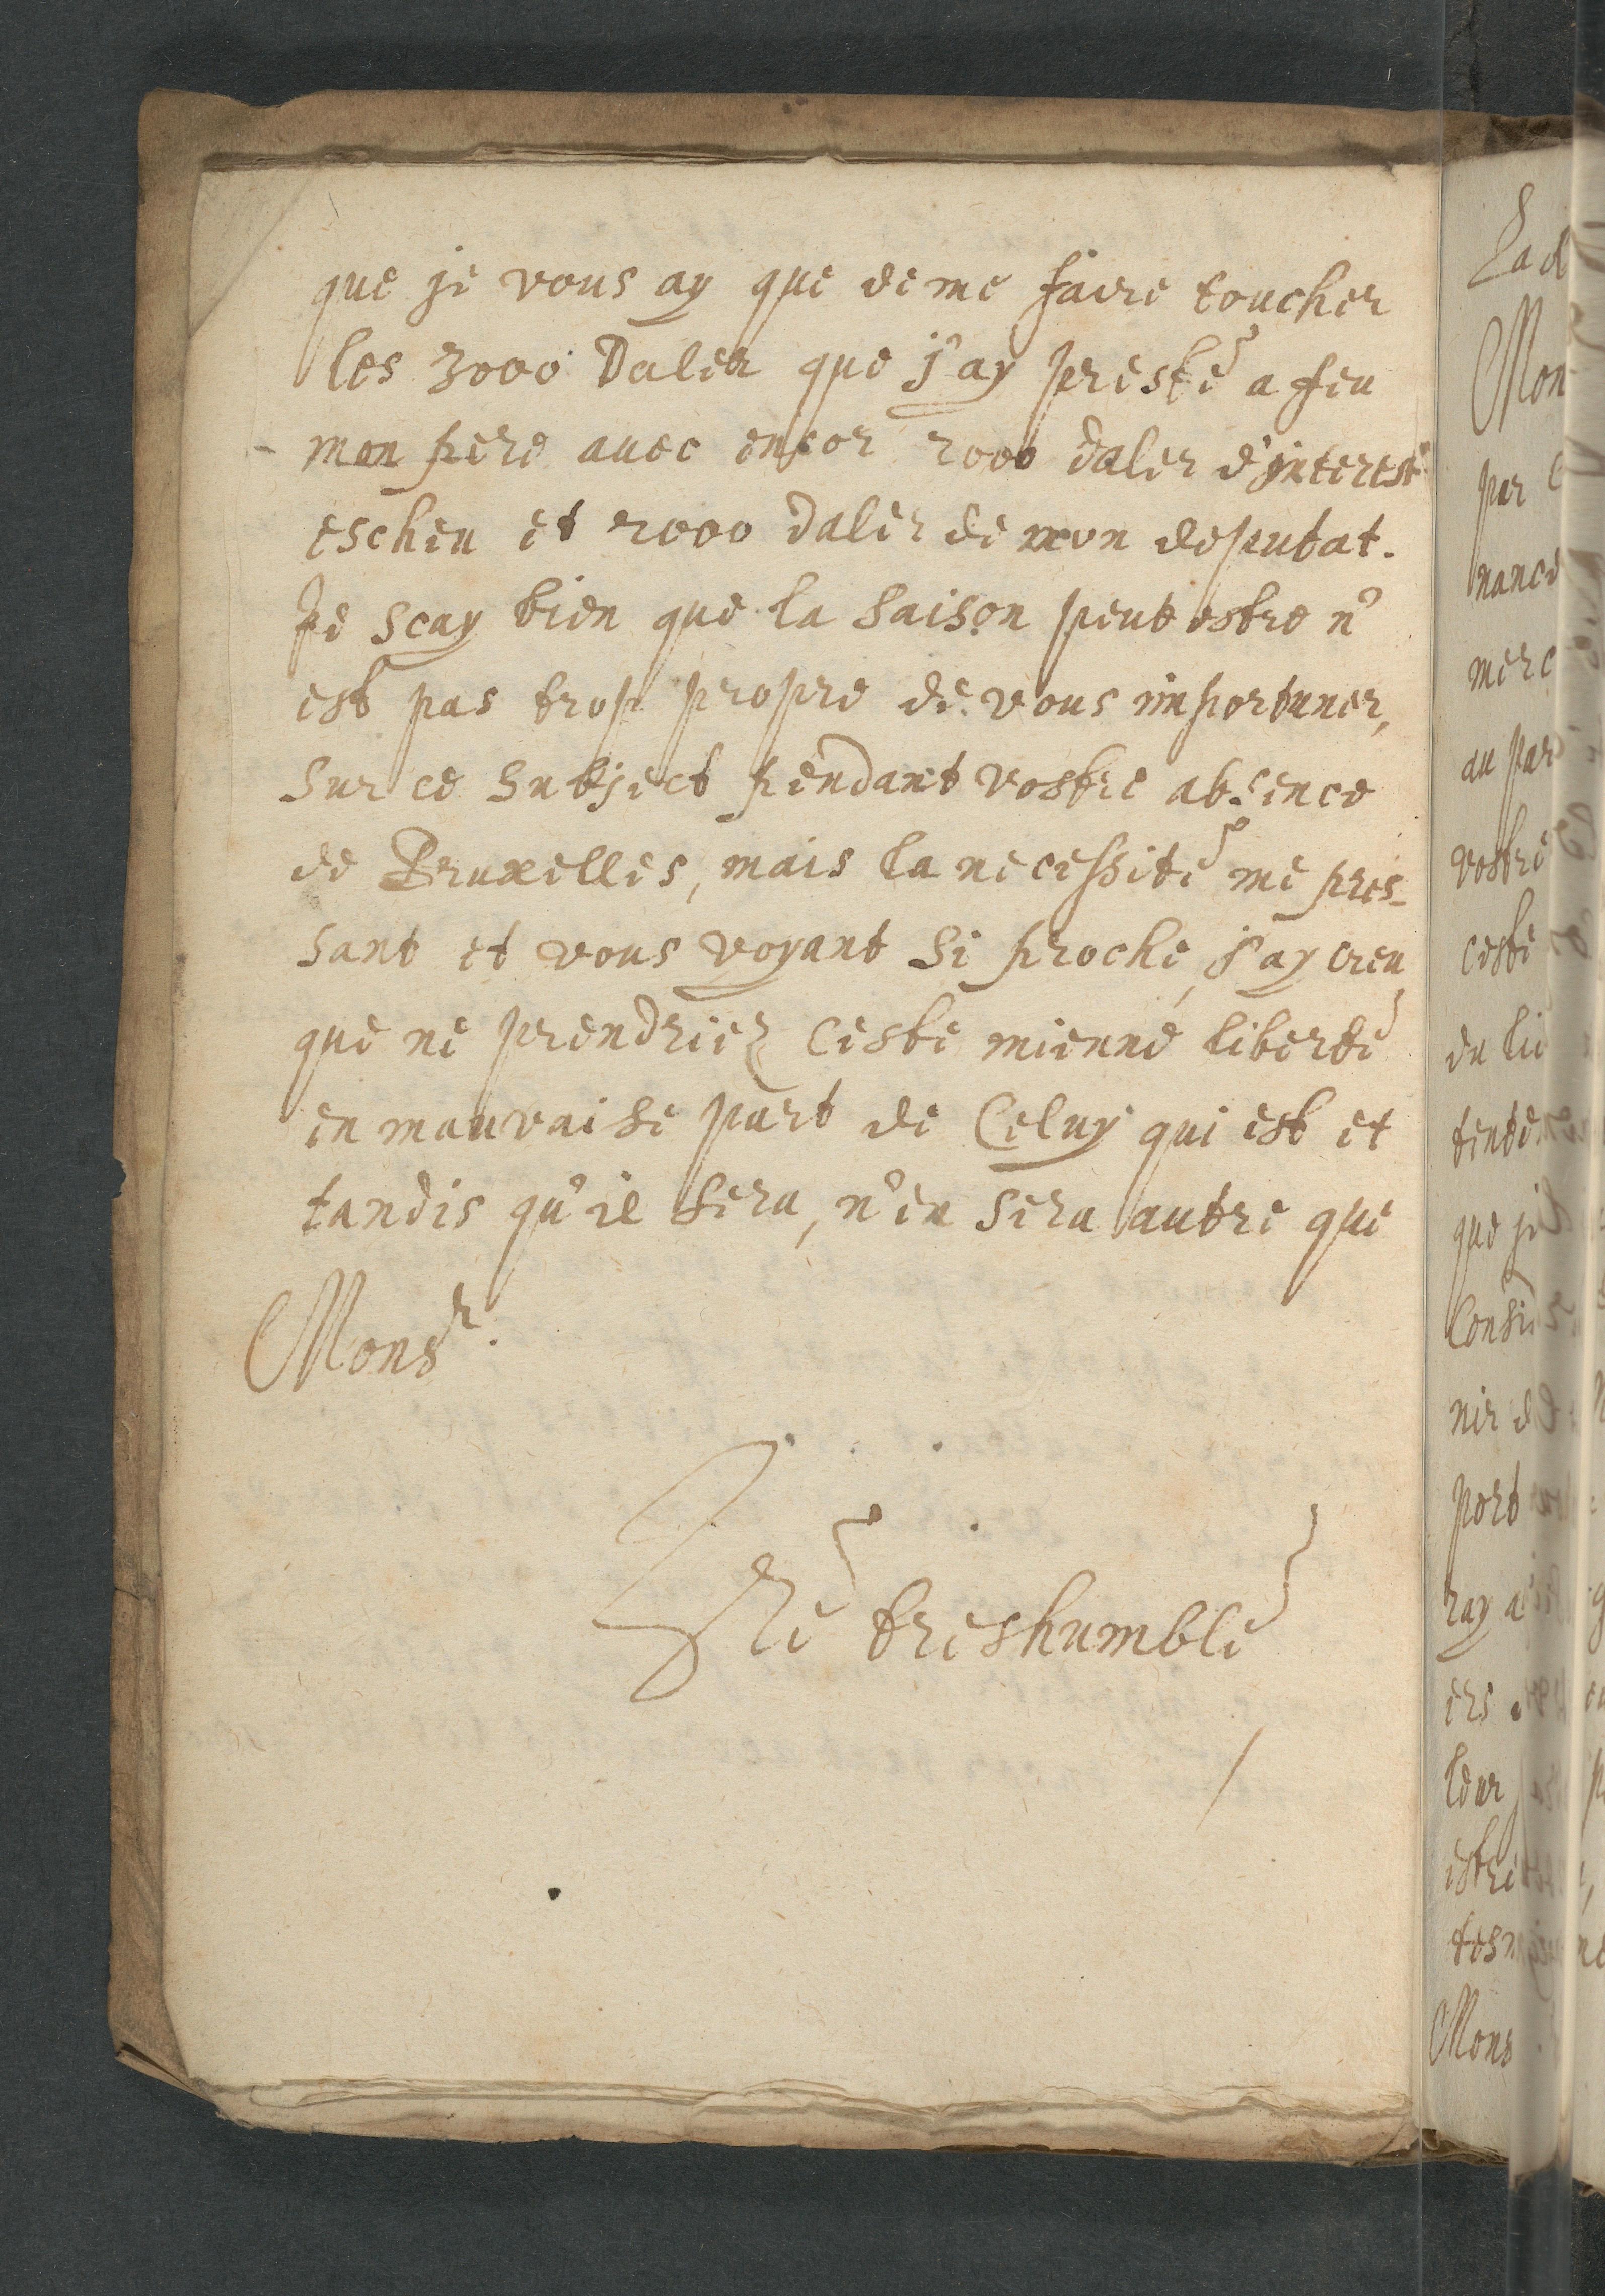 que je vous ay que de me faire toucher
les 3000 Daler que j'ay presté a feu
mon pere auec encor 2000 daler d'interest
escheu et 2000 daler de mon deputat.
Je scay bien que la saison peut estre n'
est pas trop propre de vous importuner,
sur ce subject pendant vostre absence
de Bruxelles, mais la necessité me pres-
sant et vous voyant si proche, j'ay creu
que ne prendriez ceste mienne liberté
en mauvaise part de Celuy qui est et
tandis qu'il sera, n'en sera autre que
Monsr.
tres humble
Lad
Mon
par
nance
merc
au par
vostre
ceste
du lie
tente
que je
Consi
nir d
port
ray a
ers
leur
estre
tesm
Mons